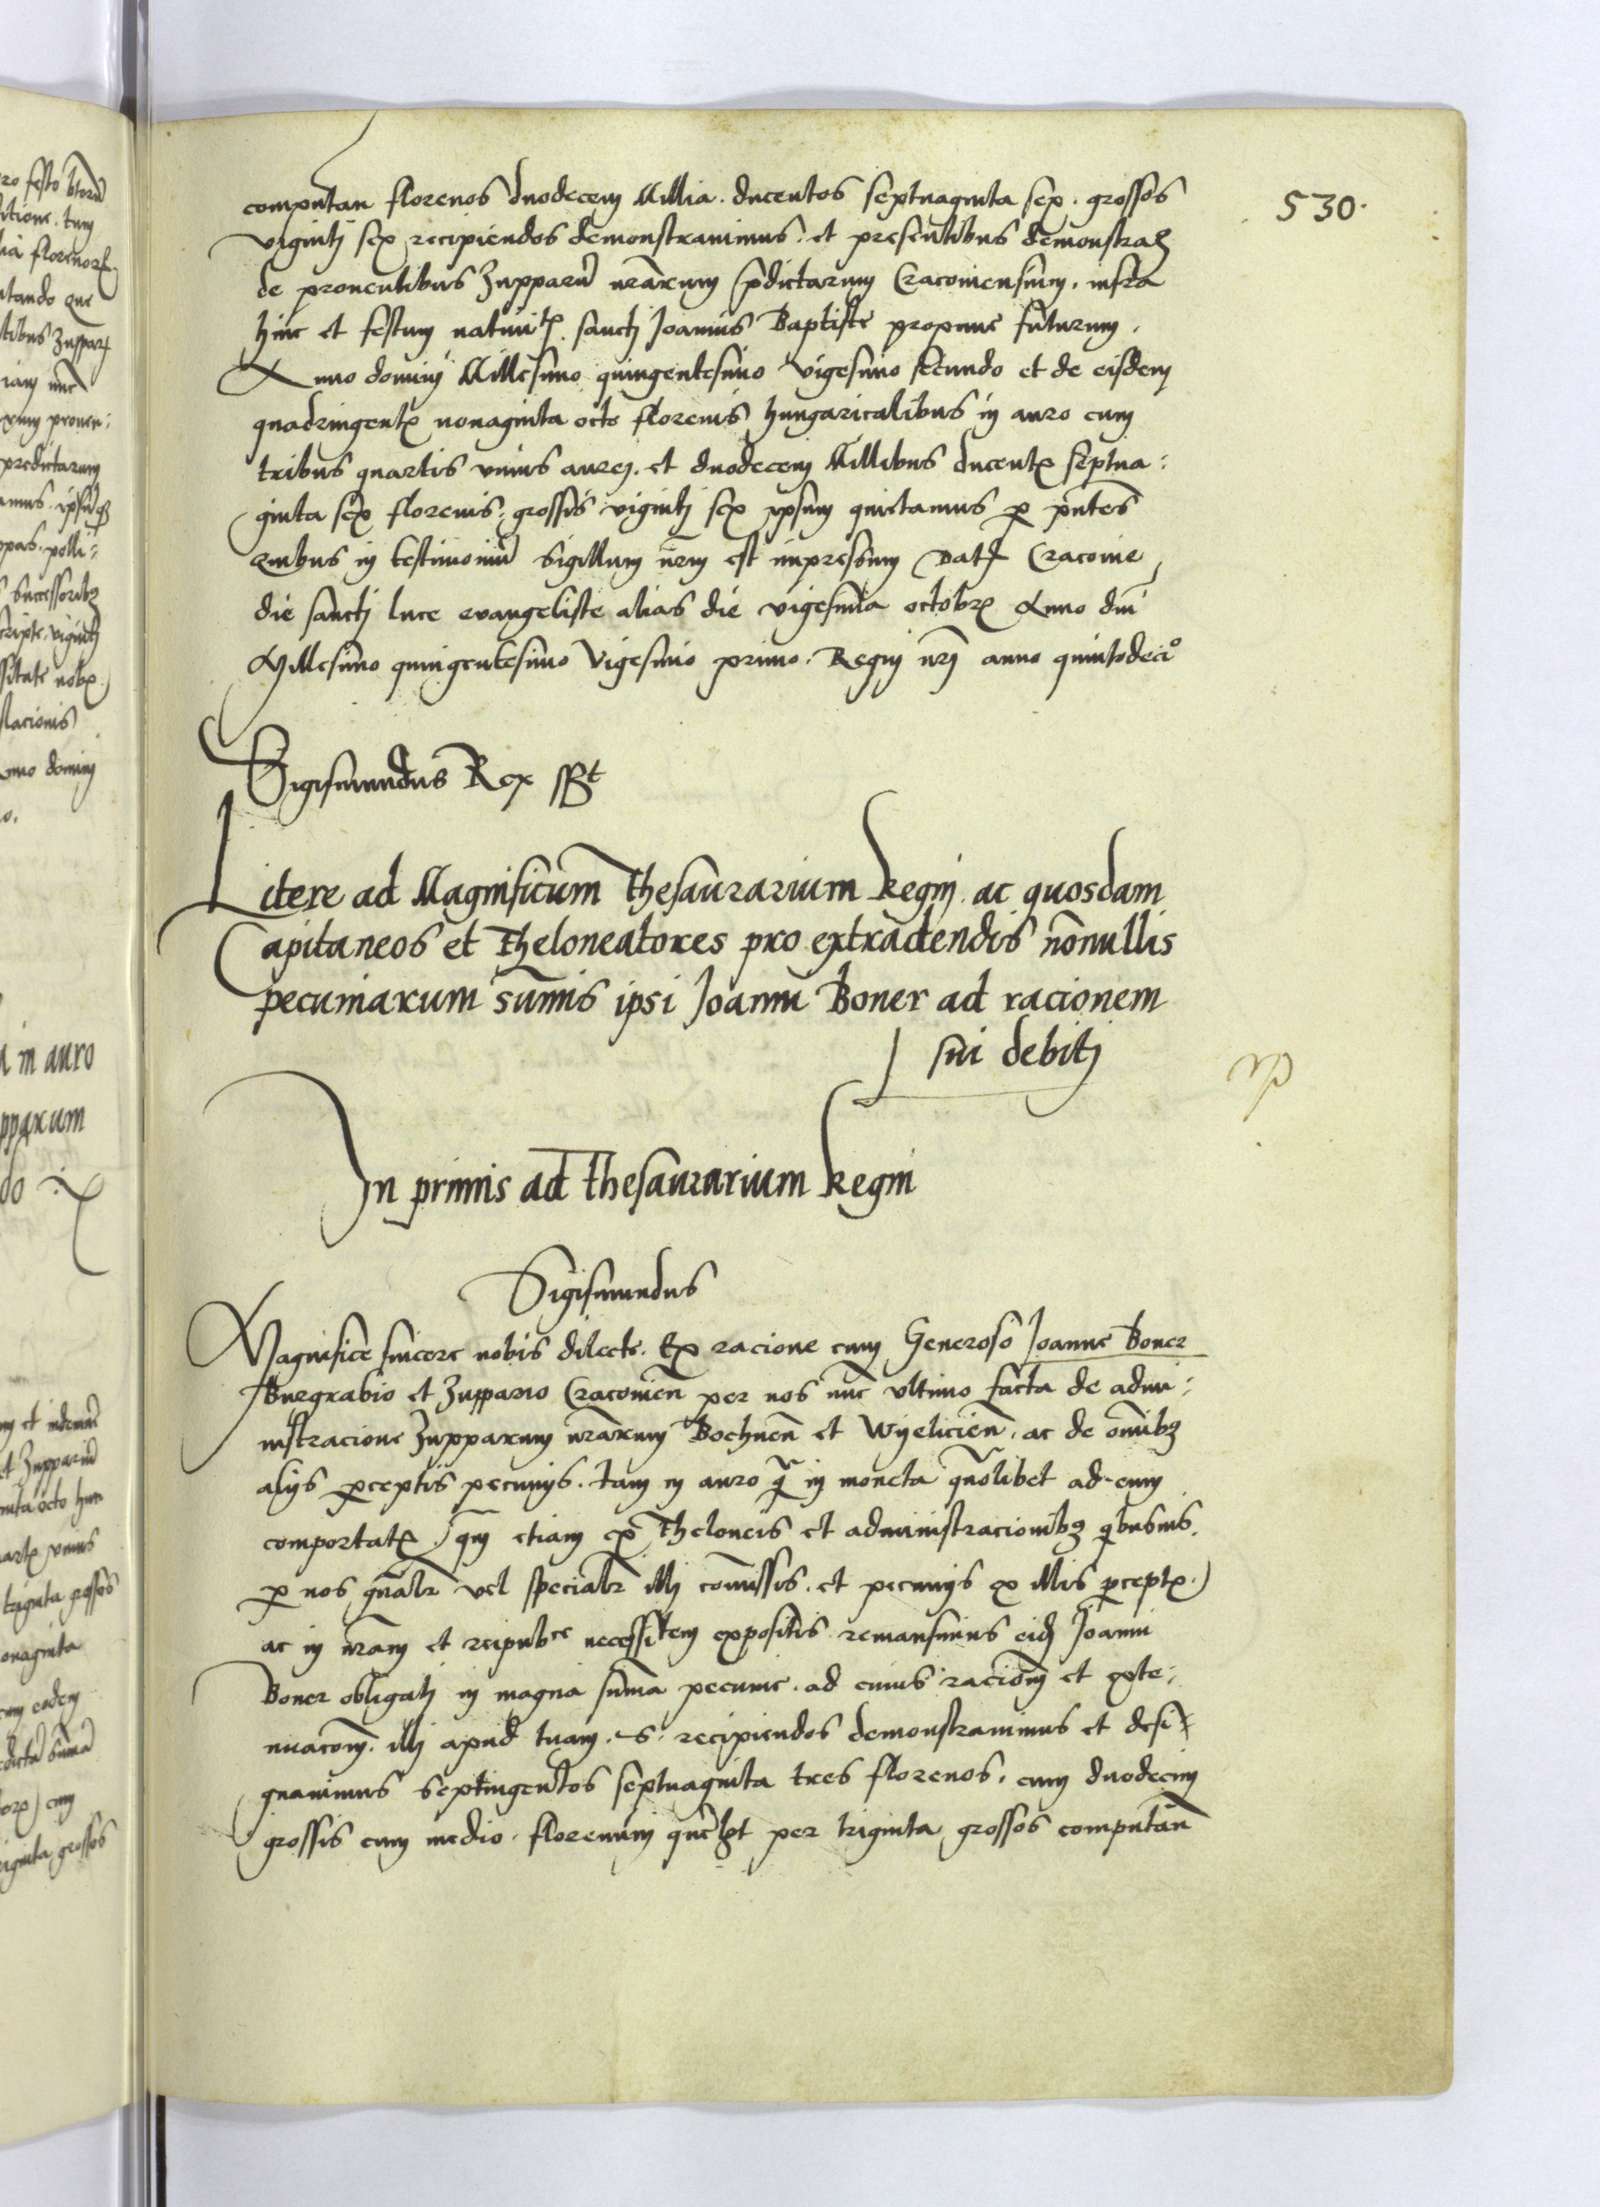 530.
computan florenos duodecem Millia. ducentos septuaginta sex. grossos
vigintj sex recipiendos demonstravimus. et presentibus demonstra
de proventibus Zupparũ nr̃arum p̃dictarum Cracoviensium. infra
hinc et festum nativitꝭ. sanctj Joannis Baptiste proxime futurum.
Anno dominj Millesimo quingentesimo Vigesimo secundo et de eisdem
quadringentꝭ nonaginta octo florenis hungaricalibus in auro cum
tribus quartis unius aurej. et duodecem Millibus ducentꝭ septua:
ginta sex florenis. grossis vigintj sex ipsum quietamus p̱ pn̄tes
Quibus in testimoniũ Sigillum nr̄m est impressum Datꝭ Cracovie
die sanctj luce evangeliste alias die vigesima octobrꝭ Anno dnĩ
Millesimo quingentesimo Vigesimo primo. Regnj nrj̃ anno quintodecio
Sigismundus Rex sßt
Litere ad Magnificum Thesaurarium Regnj. ac quosdam
Capitaneos et Theloneatores pro extradendis nõnullis
pecuniarum sum̃is ipsi Joanni Boner ad racionem
sui debitj
In primis ad thesaurarium Regni
Sigismundus
Magnifice sincere nobis dilecte. Ex racione cum Generoso Joanne Boner
Burgrabio et Zuppario Cracovien̄ per nos nũc ultimo facta de admi:
nistracione Zupparum nr̃arum Bochnen̄ et Wyelicien̄. ac de om̃ibꝫ
alijs p̱ceptis pecunijs. tam in auro q̃ in moneta qũolibet ad eum
comportatꝭ. qm̃ etiam ex Theloneis et administracionibꝫ qͥbusvis.
p̱ nos gñalr̃ vel specialr̃ illj com̃issis. et pecunijs ex illis p̱ceptꝭ.)
ac in nr̃am et reipubce necessitem expositis remansimus eidꝫ Joanni
Boner obligatj in magna sum̃a pecunie. ad cuius racion̄ et exte:
nuacon̄. illj apud tuam. S. recipiendos demonstravimus et desi
gnavimus Septingentos septuaginta tres florenos. cum duodecim
grossis cum medio. florenum quel̃bt per triginta grossos computan̄